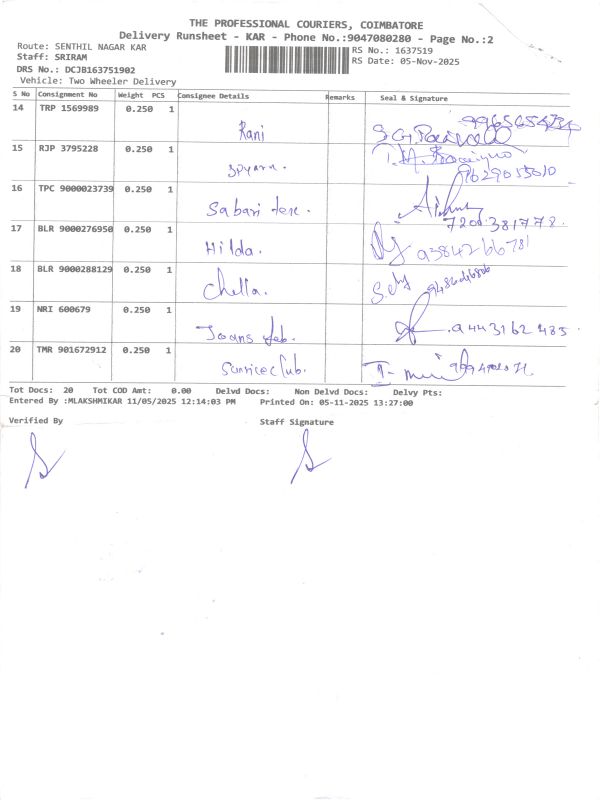 THE PROFESSIONAL COURIERS, COIMBATORE
Delivery Runsheet - KAR - Phone No.:9047080280 - Page No.:2
Route: SENTHIL NAGAR KAR
Staff: SRIRAM
DRS No.: DCJB163751902
Vehicle: Two Wheeler Delivery
RS No.: 1637519
RS Date: 05-Nov-2025
S No Consignment No Weight PCS Consignee Details Remarks Seal & Signature
14 TRP 1569989 0.250 1 Rani
15 RJP 3795228 0.250 1 9629055010
16 TPC 9000023739 0.250 1 Sabari
7200381778.
17 BLR 9000276950 0.250 1 Hilda. 9384266781
18 BLR 9000288129 0.250 1 Chella.
19 NRI 600679 0.250 1 Joans 9443162485
20 TMR 901672912 0.250 1 Sunrice Club.
Tot Docs: 20 Tot COD Amt: 0.00 Delvd Docs: Non Delvd Docs: Delvy Pts:
Entered By :MLAKSHMIKAR 11/05/2025 12:14:03 PM Printed On: 05-11-2025 13:27:00
Verified By Staff Signature